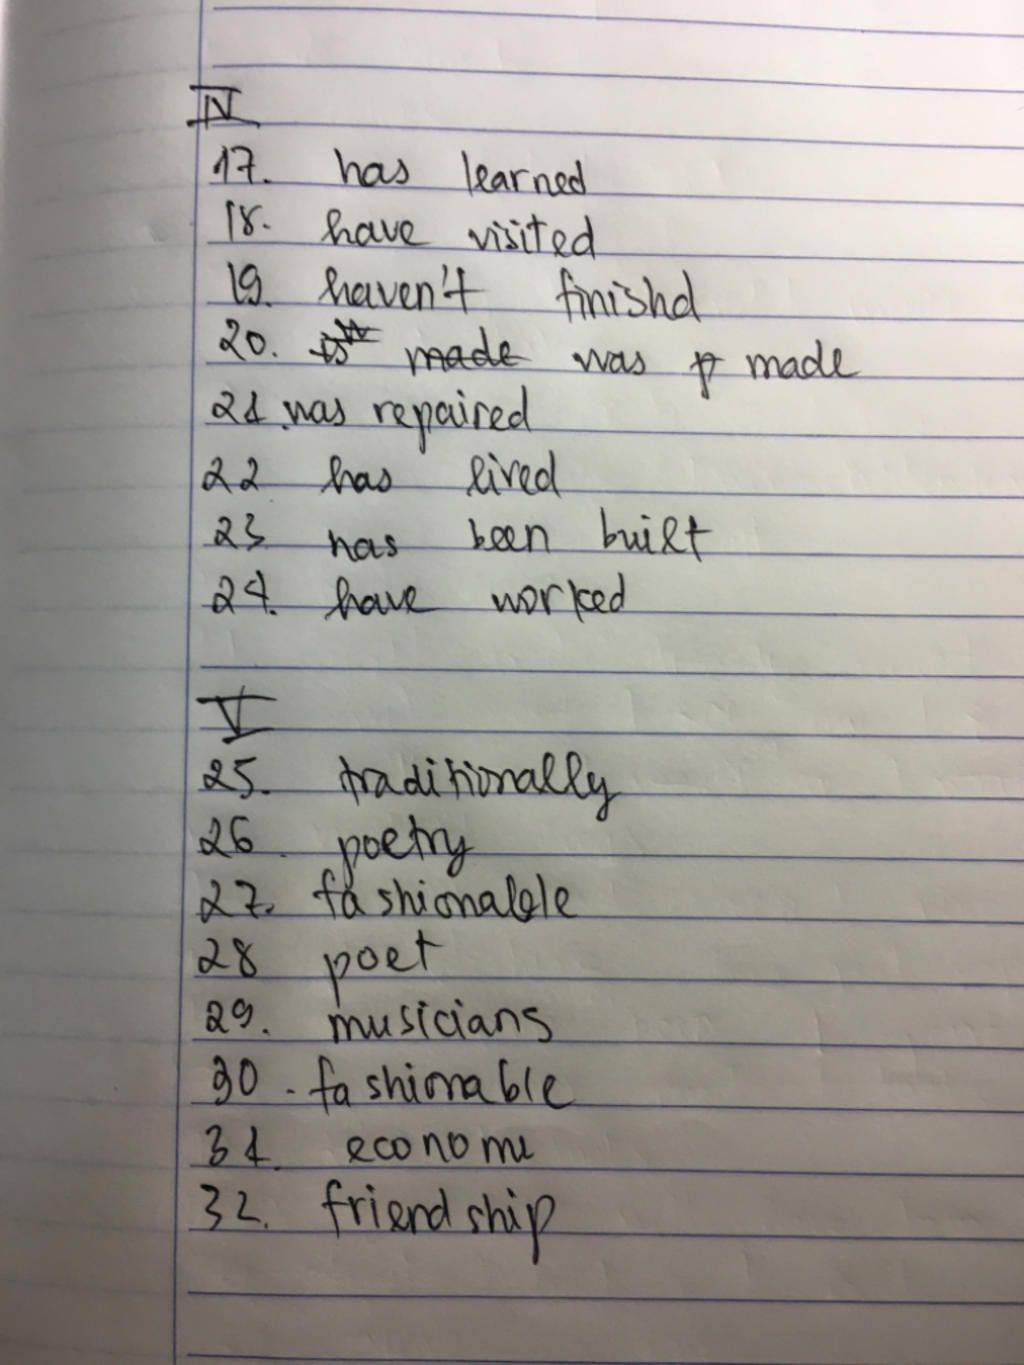 IV
17. has learned
18. have visited
19. haven't finishd
20. made was p made
21. was repaired
22 has lived
23 has been built
24. have worked
V
25. traditionally
26. poetry
27. fashionable
28 poet
29. musicians
30. fashionable
31. econome
32. friendship